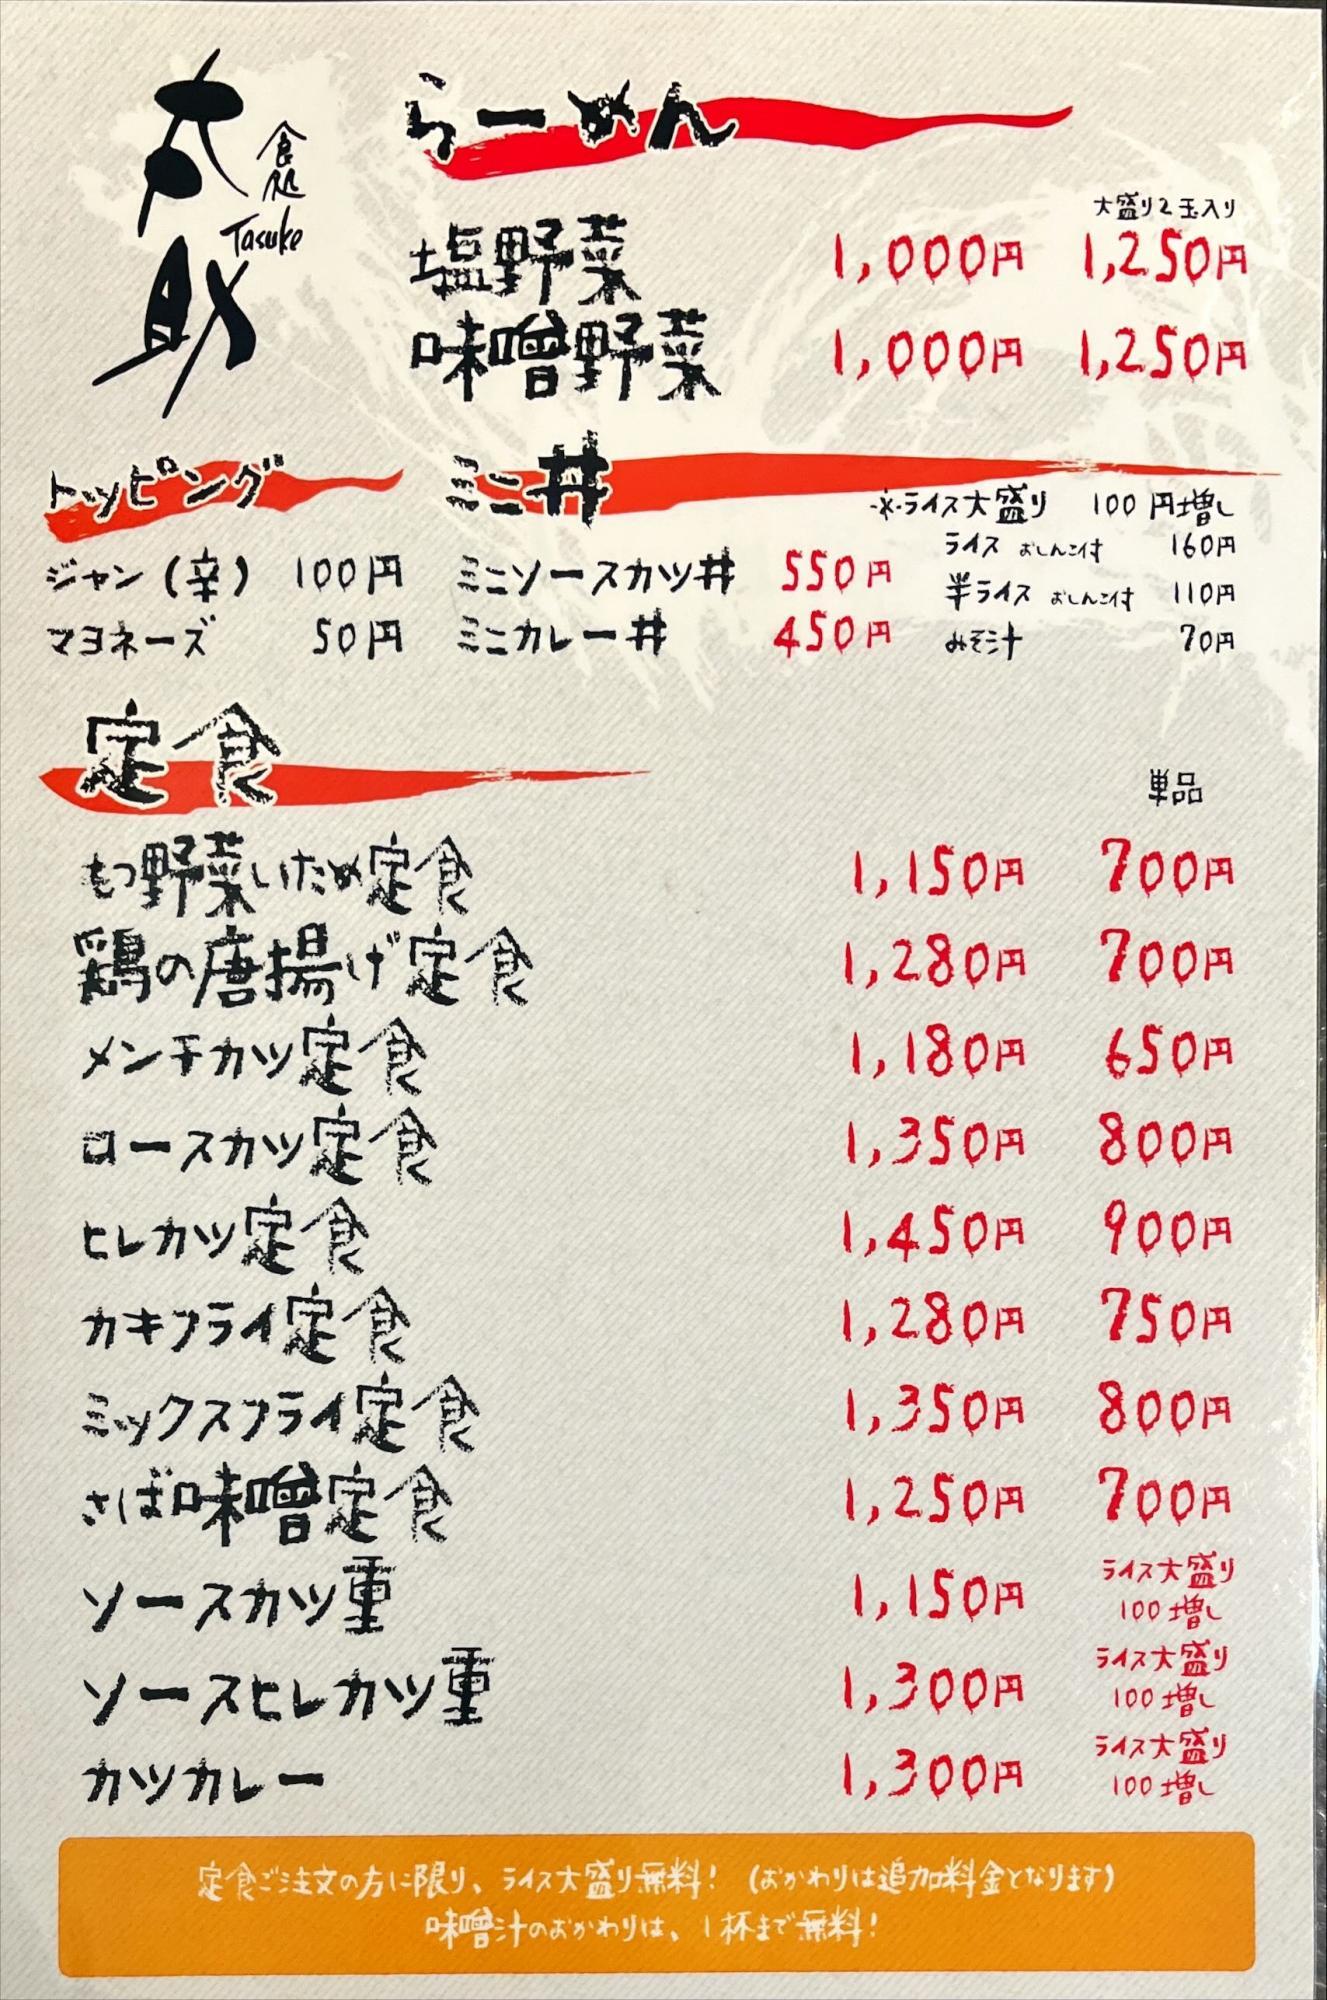 太助
食処
Tasuke
らーめん
大盛り2玉入り
塩野菜 1,000円 1,250円
味噌野菜 1,000円 1,250円
トッピング
ジャン(辛) 100円
マヨネーズ 50円
ミニ丼
※ライス大盛り 100円増し
ミニソースカツ丼 550円
ミニカレー丼 450円
ライス おしんこ付 160円
半ライス おしんこ付 110円
みそ汁 70円
定食
単品
もつ野菜いため定食 1,150円 700円
鶏の唐揚げ定食 1,280円 700円
メンチカツ定食 1,180円 650円
ロースカツ定食 1,350円 800円
ヒレカツ定食 1,450円 900円
カキフライ定食 1,280円 750円
ミックスフライ定食 1,350円 800円
さば味噌定食 1,250円 700円
ソースカツ重 1,150円 ライス大盛り
100増し
ソースヒレカツ重 1,300円 ライス大盛り
100増し
カツカレー 1,300円 ライス大盛り
100増し
定食ご注文の方に限り、ライス大盛り無料!(おかわりは追加料金となります)
味噌汁のおかわりは、1杯まで無料!